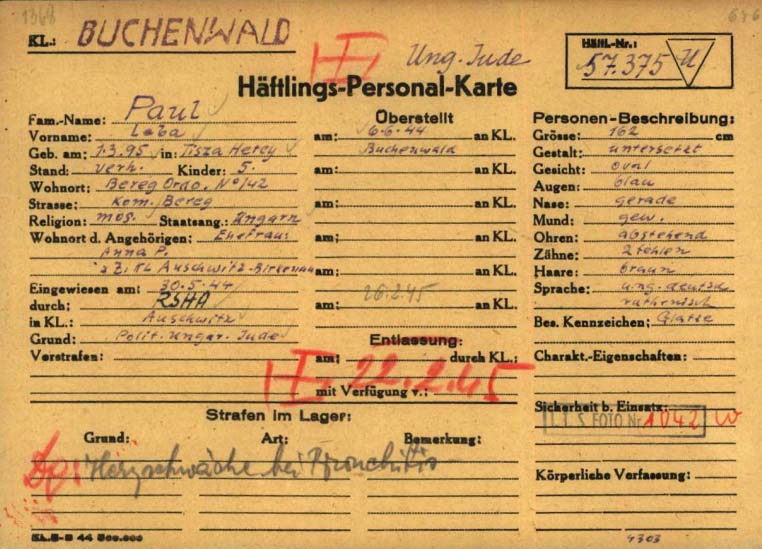 1368
646
KL.: BUCHENWALD
Ung. Jude
Häftl.-Nr.:
57.375 U
Häftlings-Personal-Karte
Fam.-Name: Paul
Vorname: Laba
Geb. am: 1.3.95 in: Tisza Hetey
Stand: verh. Kinder: 5.
Wohnort: Bereg Ordo. No 142
Strasse: Kom. Bereg
Religion: mos. Staatsang.: Ungarn
Wohnort d. Angehörigen: Ehefrau:
Anna P.
z. Zt. KL Auschwitz-Birkenau
Eingewiesen am: 30.5.44
durch: RSHA
in KL.: Auschwitz
Grund: Polit. Ungar. Jude
Vorstrafen:
Überstellt
am: 6.6.44 an KL.
Buchenwald
am: an KL.
am: an KL.
am: an KL.
am: an KL.
26.2.45
am: an KL.
Entlassung:
am: durch KL.:
22.2.45
mit Verfügung v.:
Personen-Beschreibung:
Grösse: 162 cm
Gestalt: untersetzt
Gesicht: oval
Augen: blau
Nase: gerade
Mund: gew.
Ohren: abstehend
Zähne: 2 fehlen
Haare: braun
Sprache: ung. deutsch
ruthenisch
Bes. Kennzeichen: Glatze
Charakt.-Eigenschaften:
Sicherheit b. Einsatz:
I.T.S. FOTO Nr. 1042 W
Körperliche Verfassung:
Strafen im Lager:
Grund: Art: Bemerkung:
Herzschwäche bei Bronchitis
4303